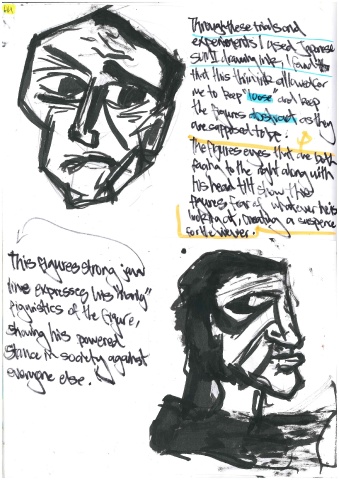 Through these trials and
experiments I used Japanese
drawing ink, I found
that this thin ink allowed for
me to keep "loose" and keep
the figures abstract as they
are supposed to be.
The figures eyes that are both
facing to the right along with
his head tilt show this
figures fear of whatever he is
looking at, creating a suspense
for the viewer.
This figures strong jaw
line expresses his "manly"
of the figure,
showing his powered
stance in society against
everyone else.